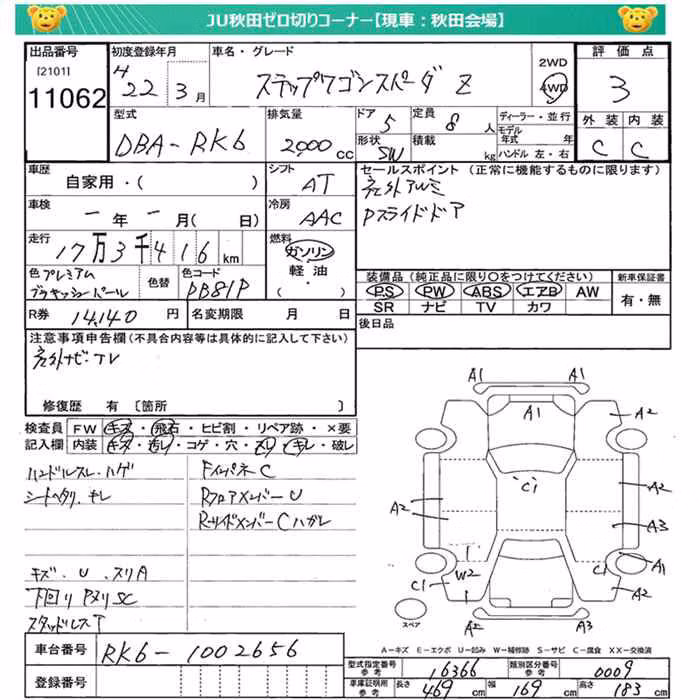 JU秋田ゼロ切りコーナー【現車：秋田会場】
出品番号 初度登録年月 車名・グレード 評価点
[2101]
11062
H 22年 3月 ステップワゴンスパーダ Z 2WD 4WD 3
型式 排気量 ドア 定員 ディーラー・並行 外装 内装
DBA-RK6 2,000cc 5 8人 モデル年式 年
形状 SW 積載 kg ハンドル 左・右 C C
車歴 シフト セールスポイント (正常に機能するものに限ります)
自家用・( ) AT 社外アルミ
車検 冷房 Pスライドドア
一年一月( 日) AAC
走行 燃料
17万3千416km ガソリン
軽油
・( )
色 プレミアム 色替 色コード 装備品(純正品に限り○をつけてください) 新車保証書
PB81P PS PW ABS エアB AW 有・無
SR ナビ TV カワ
R券 14,140円 名変期限 月 日 後日品
注意事項申告欄(不具合内容等は具体的に記入して下さい)
社外ナビ・TV
修復歴 有 [箇所 ]
検査員 FW キズ・飛石・ヒビ割・リペア跡・×要
記入欄 内装 キズ・汚レ・コゲ・穴・スレ・キレ・破レ
ハンドルスレ・ハゲ FインパネC
シートヘタリ・キレ RフロアメンバーU
RサイドメンバーCハガレ
キズ・U・スリA
下回リPヌリSC
スタッドレスT
A1 A1
A1 A2
C1
A2 A2
A2 A3
C1 W2 C1 A1
A2
スペア A2 A3
A－キズ E－エクボ U－凹み W－補修跡 S－サビ C－腐食 XX－交換済
車台番号 RK6-1002656
登録番号
型式指定番号参考 16366 類別区分番号参考 0009
車庫証明用参考 長さ 469cm 幅 169cm 高さ 183cm